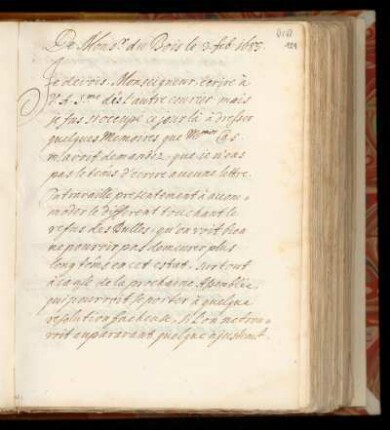 De Mons.r du Bois le 2. feb. 1683.
Je devois, Monseigneur, écrire à
V. A. S.me dés l'autre courier mais
je fus si occupé ce jour là à dresser
quelques Memoires que
m'avoit demandez, que je n'eus
pas le tems d'ecrire aucune lettre.
On travaille presentement à accom-
moder le different touchant le
refus des Bulles, qu'on voit bien
ne pouvoir pas demeurer plus
longtéms en cet estat, surtout
à cause de la prochaine Assemblée,
qui pourroit se porter à quelque
resolution facheuse, si l'on ne trou-
voit auparavant quelque ajustemt.